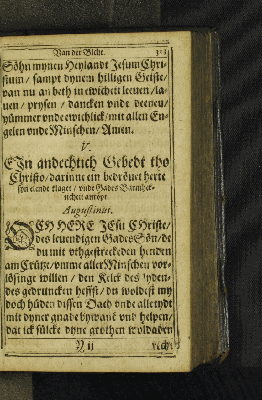 Van der Bicht. 313
Söhn mynen Heylandt Jesum Chri-
stum / sampt dynem hilligen Geiste/
van nu an beth in ewicheit leeuen/la-
uen / prysen / dancken vnde deenen/
yümmer vnde ewichlick/mit allen En-
gelen vnde Minschen/ Amen.
V.
EIn andechtich Gebedt tho
Christo/darinne ein bedröuet herte
syn elende klaget / vnde Gades Barmher-
ticheit anröpt.
Augustinus.
OCH HERE JEsu CHriste/
des leuendigen Gades Sön/de
du mit vthgestreckeden henden
am Crütze/vmme aller Minschen vor-
lösinge willen / den Kelck des lyden-
des gedruncken heffst/du woldest my
doch hüden dissen Dach vnde alletydt
mit dyner gnade bywanen vnd helpen/
dat ick sülcke dyne grothen woldaden
Y ii